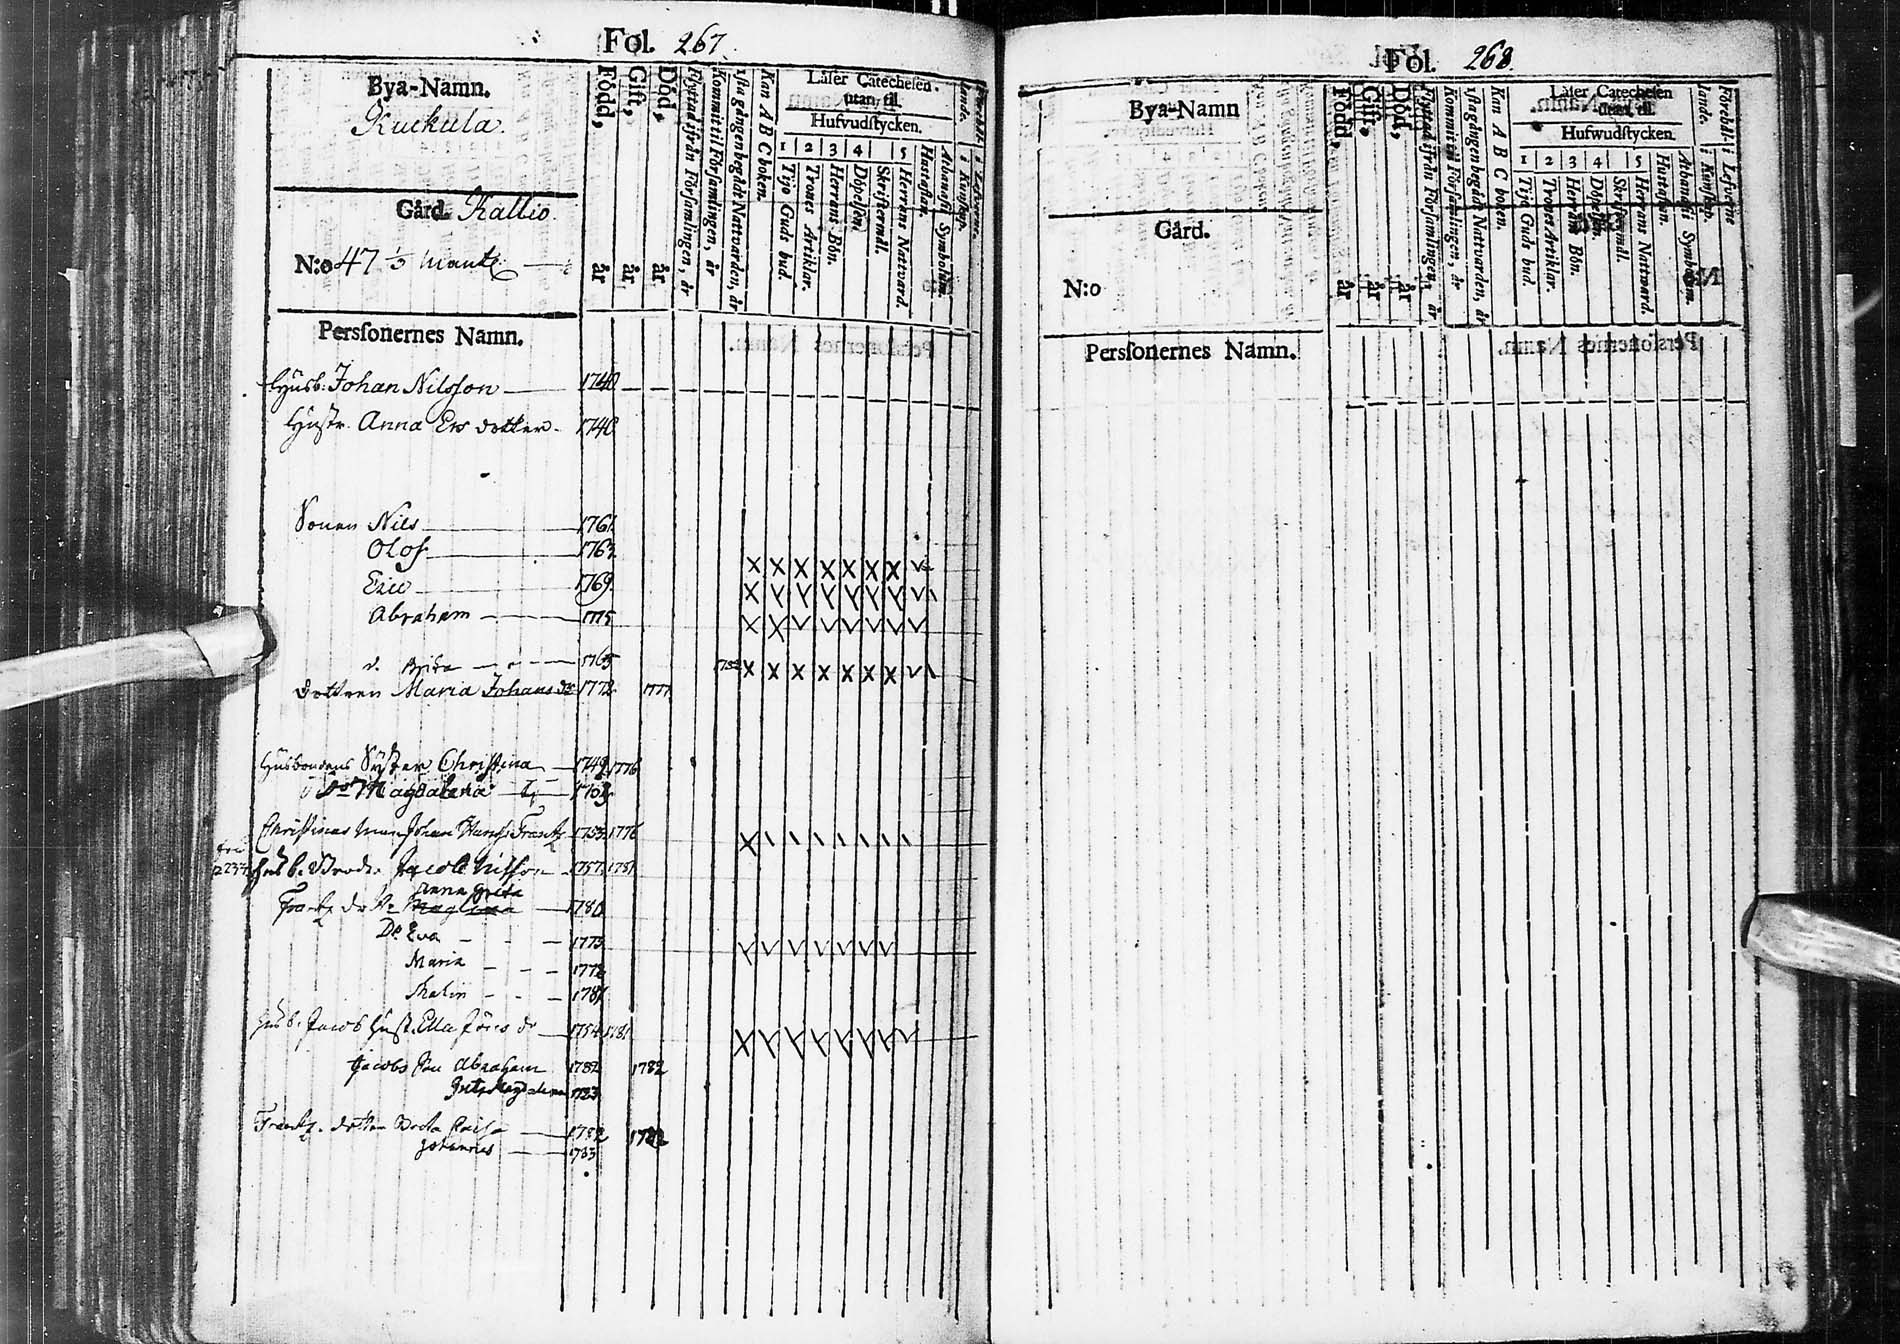 Fol. 267.
Bya-Namn.
Kuckula.
Gård. Kallio.
N:o 47 1/3 mantl.
Född, år
Gift, år
Död, år
Flyttad ifrån Församlingen, år
Kommit til Församlingen, år
1sta gången begådt Nattvarden, år
Kan A B C boken.
Läser Catechesen
utan til.
Hufvudstycken.
1 2 3 4 5
Tijo Guds bud.
Trones Artiklar.
Herrans Bön.
Döpelsen.
Skriftermål.
Herrens Nattvard.
Hustaflan.
Athanasii Symbolum.
Personernes Namn.
Husb. Johan Nilsson 1740
Hustr. Anna Ers dotter 1740
Sonen Nils 1761
Olof 1763
Eric 1769
Abraham 1775
d. Brita 1765
dottren Maria Johans dr 1772 1777
Husbondens Syster Christina 1749 1776
Do Magdalena
Christinas man Johan Frantz 1753 1776
Husb. Broder Jacob Nilsson 1757 1781
Anna Greta
Frantz dottr 1780
Do Eva 1773
Maria 1772
Malin 1781
Husb. Jacob Hust. Ella dr 1754 1781
Jacobs son Abraham 1782 1782
Greta Magdalena 1783
Frantz dotter Caisa 1782 1782
Johannes 1783
Fol. 268.
Bya-Namn
Gård.
N:o
Född, år
Gift, år
Död, år
Flyttad ifrån Församlingen, år
Kommit til Församlingen, år
1sta gången begådt Nattvarden, år
Kan A B C boken.
Läser Catechesen
utan til.
Hufwudstycken.
1 2 3 4 5
Tijo Guds bud.
Trones Artiklar.
Herrans Bön.
Döpelsen.
Skriftermål.
Herrans Nattvard.
Hustaflan.
Athanasii Symbolum.
Personernes Namn.